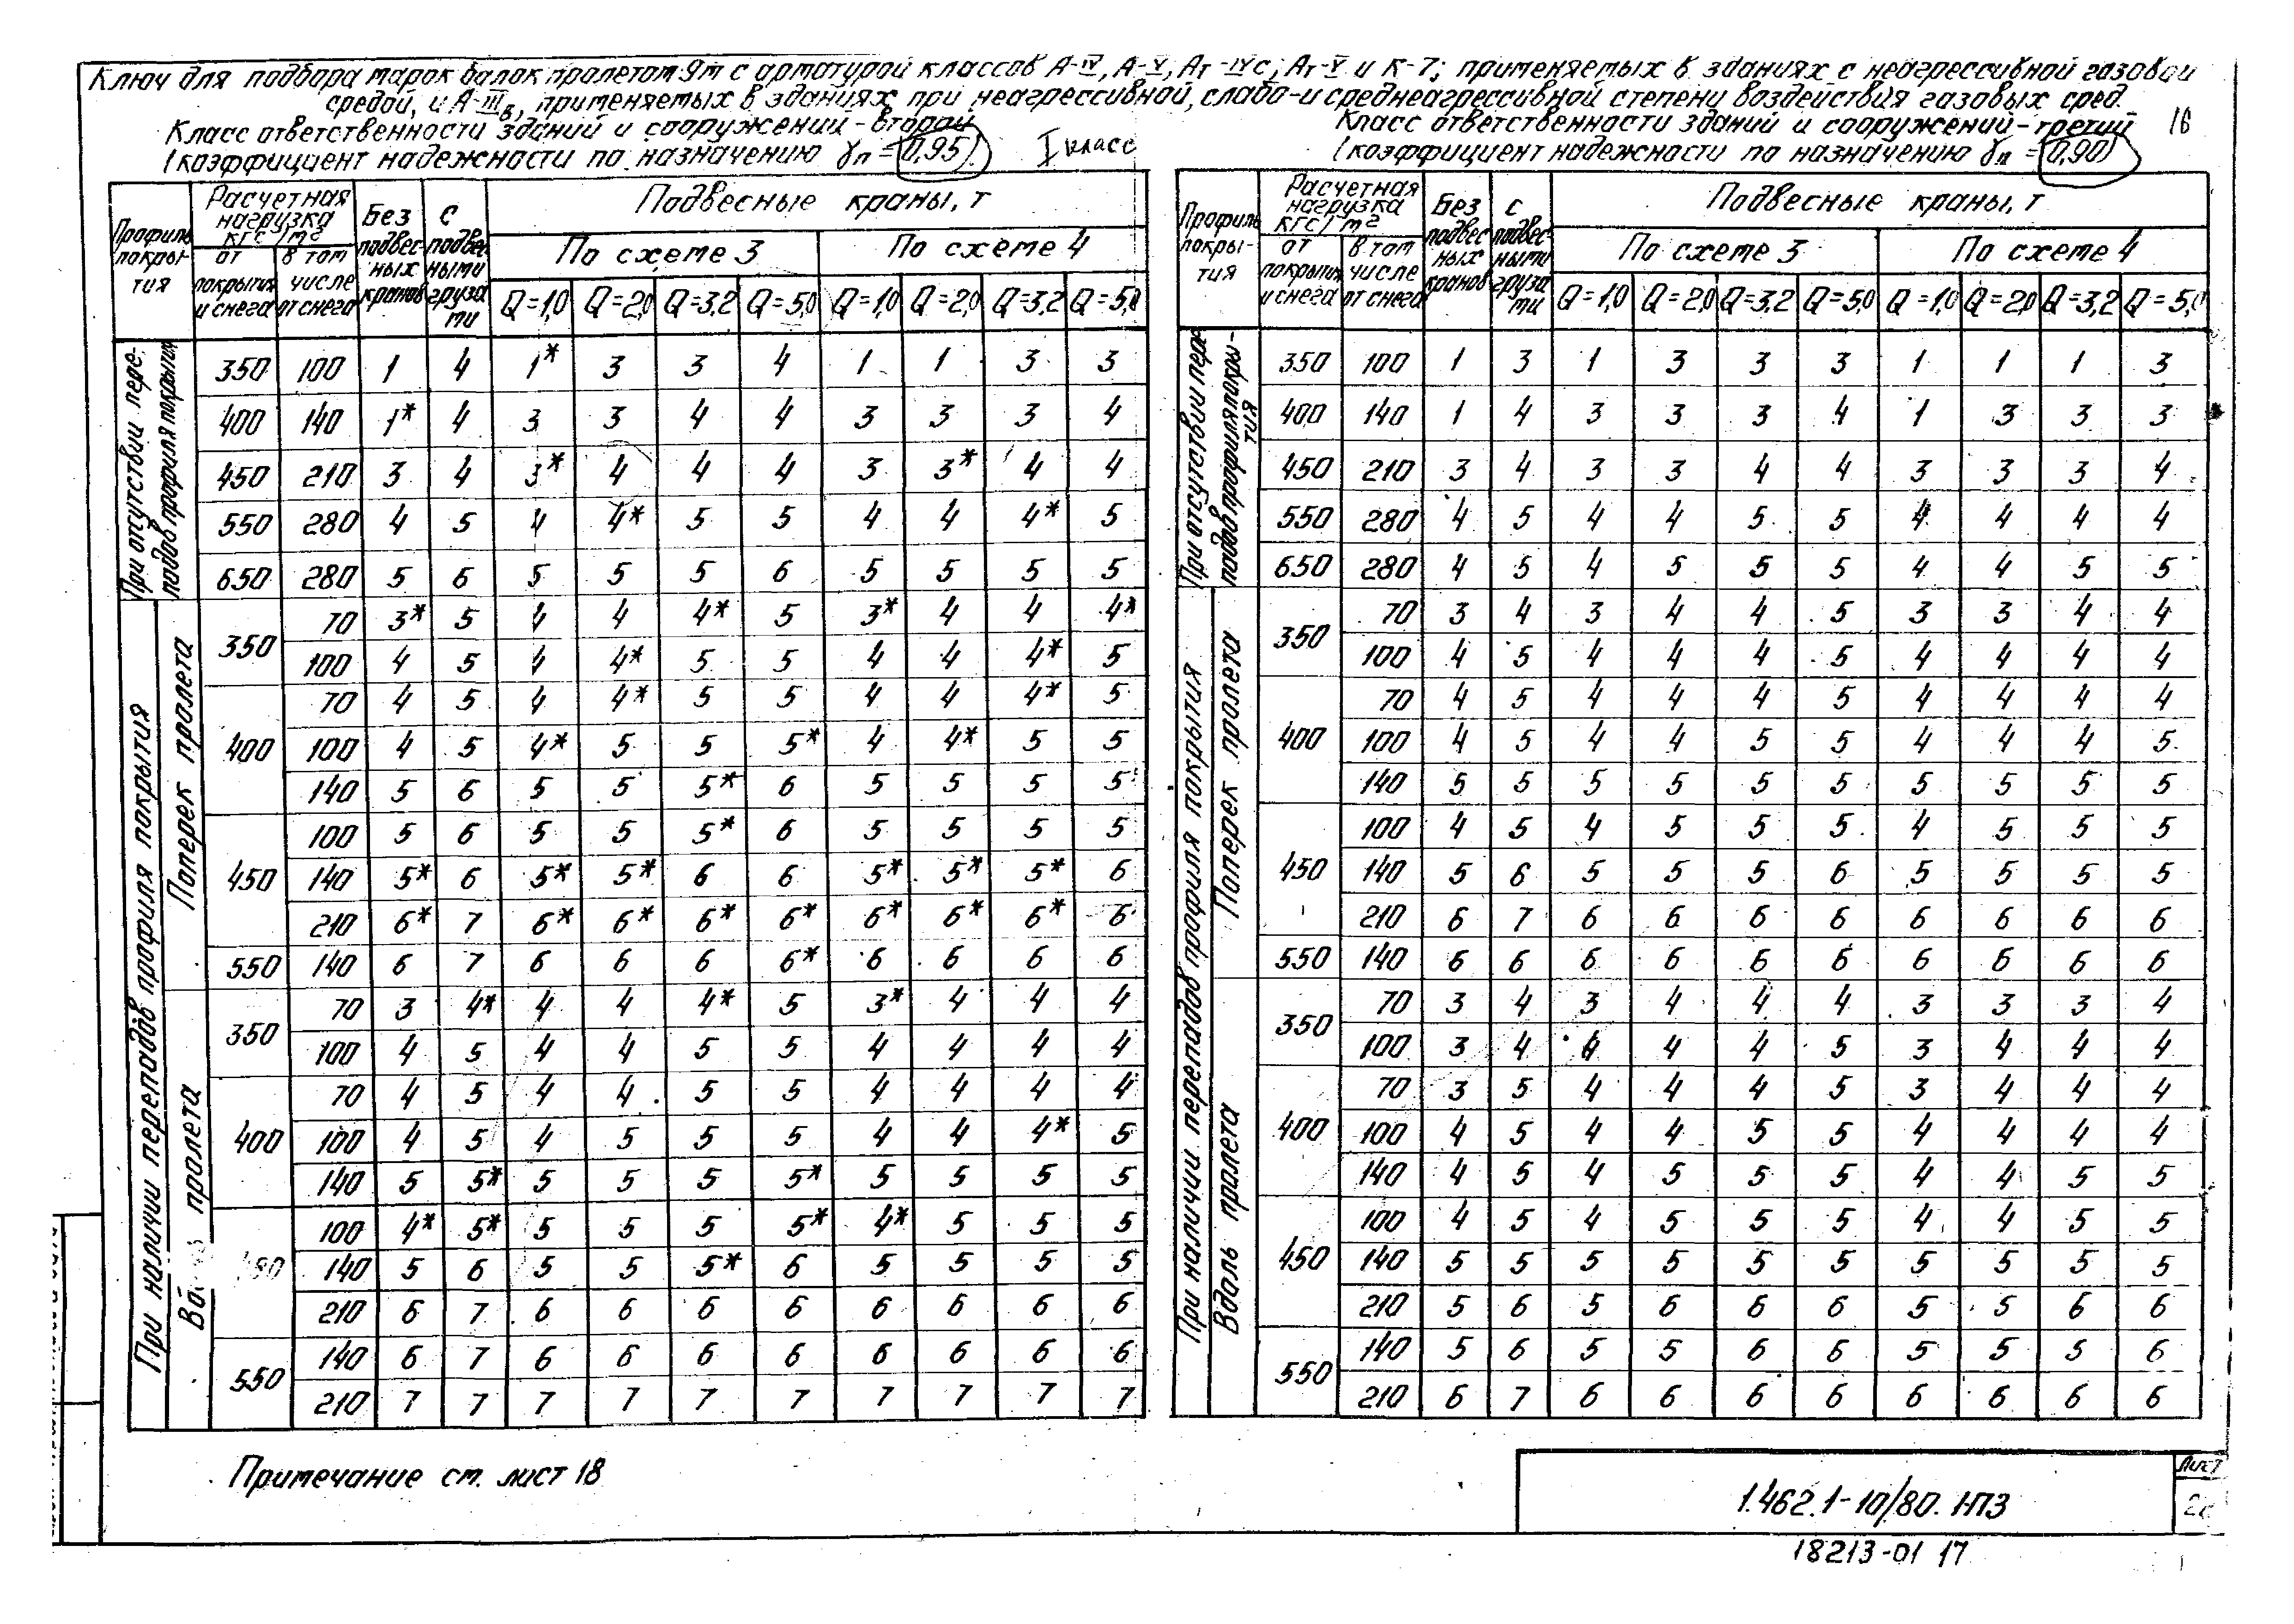 Ключ для подбора марок балок пролетом 9м с арматурой классов А-IV, А-V, Ат-IVс, Ат-V и К-7; применяемых в зданиях с неагрессивной газовой
средой, и А-IIIв, применяемых в зданиях при неагрессивной, слабо- и среднеагрессивной степени воздействия газовых сред.
Класс ответственности зданий и сооружений - вторая
(коэффициент надежности по назначению γп = 0,95)
I класс
Класс ответственности зданий и сооружений - третий
(коэффициент надежности по назначению γп = 0,90)
16
Профиль покры-тия
Расчетная нагрузка кгс/м²
от покрытия и снега
в том числе от снега
Без подвес-ных кранов
С подвес-ными груза ми
Подвесные краны, т
По схеме 3
По схеме 4
Q=1,0 Q=2,0 Q=3,2 Q=5,0 Q=1,0 Q=2,0 Q=3,2 Q=5,0
При отсутствии пере-падов профиля покрытия
350 100 1 4 1* 3 3 4 1 1 3 3
400 140 1* 4 3 3 4 4 3 3 3 4
450 210 3 4 3* 4 4 4 3 3* 4 4
550 280 4 5 4 4* 5 5 4 4 4* 5
650 280 5 6 5 5 5 6 5 5 5 5
При наличии перепадов профиля покрытия
Поперек пролета
350 70 3* 5 4 4 4* 5 3* 4 4 4*
100 4 5 4 4* 5 5 4 4 4* 5
400 70 4 5 4 4* 5 5 4 4 4* 5
100 4 5 4* 5 5 5* 4 4* 5 5
140 5 6 5 5 5* 6 5 5 5 5
450 100 5 6 5 5 5* 6 5 5 5 5
140 5* 6 5* 5* 6 6 5* 5* 5* 6
210 6* 7 6* 6* 6* 6* 6* 6* 6* 6
550 140 6 7 6 6 6 6* 6 6 6 6
пролета
350 70 3 4* 4 4 4* 5 3* 4 4 4
100 4 5 4 4 5 5 4 4 4 4
400 70 4 5 4 4 5 5 4 4 4 4
100 4 5 4 5 5 5 4 4 4* 5
140 5 5* 5 5 5 5* 5 5 5 5
100 4* 5* 5 5 5 5* 4* 5 5 5
140 5 6 5 5 5* 6 5 5 5 5
210 6 7 6 6 6 6 6 6 6 6
550 140 6 7 6 6 6 6 6 6 6 6
210 7 7 7 7 7 7 7 7 7 7
Профиль покры-тия
Расчетная нагрузка кгс/м²
от покрытия и снега
в том числе от снега
Без подвес ных кранов
С подвес-ными груза ми
Подвесные краны, т
По схеме 3
По схеме 4
Q=1,0 Q=2,0 Q=3,2 Q=5,0 Q=1,0 Q=2,0 Q=3,2 Q=5,0
При отсутствии пере-падов профиля покры-тия
350 100 1 3 1 3 3 3 1 1 1 3
400 140 1 4 3 3 3 4 1 3 3 3
450 210 3 4 3 3 4 4 3 3 3 4
550 280 4 5 4 4 5 5 4 4 4 4
650 280 4 5 4 5 5 5 4 4 5 5
При наличии перепадов профиля покрытия
Поперек пролета
350 70 3 4 3 4 4 5 3 3 4 4
100 4 5 4 4 4 5 4 4 4 4
400 70 4 5 4 4 4 5 4 4 4 4
100 4 5 4 4 5 5 4 4 4 5
140 5 5 5 5 5 5 5 5 5 5
450 100 4 5 4 5 5 5 4 5 5 5
140 5 6 5 5 5 6 5 5 5 5
210 6 7 6 6 6 6 6 6 6 6
550 140 6 6 6 6 6 6 6 6 6 6
Вдоль пролета
350 70 3 4 3 4 4 4 3 3 3 4
100 3 4 4 4 4 5 3 4 4 4
400 70 3 5 4 4 4 5 3 4 4 4
100 4 5 4 4 5 5 4 4 4 4
140 4 5 4 5 5 5 4 4 5 5
450 100 4 5 4 5 5 5 4 4 5 5
140 5 5 5 5 5 5 5 5 5 5
210 5 6 5 6 6 6 5 5 6 6
550 140 5 6 5 5 6 6 5 5 5 6
210 6 7 6 6 6 6 6 6 6 6
Примечание см. лист 18
1.462.1-10/80.1-ПЗ
Лист
18213-01 17